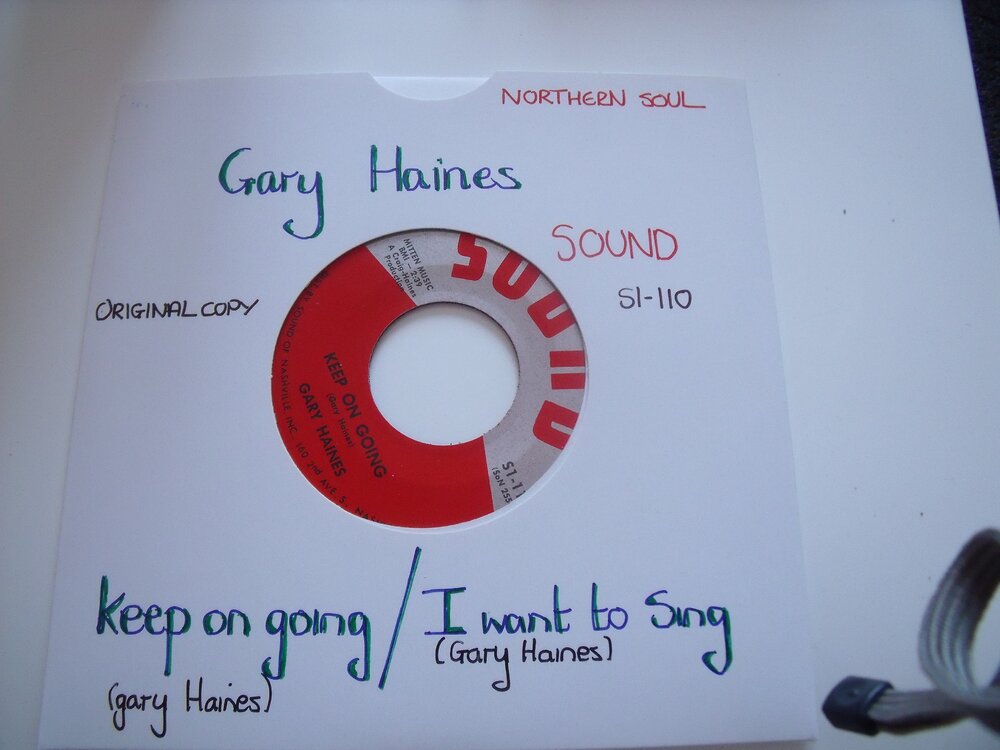 NORTHERN SOUL
Gary Haines
SOUND
S1-110
ORIGINAL COPY
MITTEN MUSIC
BMI - 2:39
A Craig-Haines
Production
SOUND
KEEP ON GOING
(Gary Haines)
GARY HAINES
S1-11
(SoN 255
SOUND OF NASHVILLE, INC. 160 2nd AVE. S.
keep on going / I want to Sing
(Gary Haines)
(gary Haines)